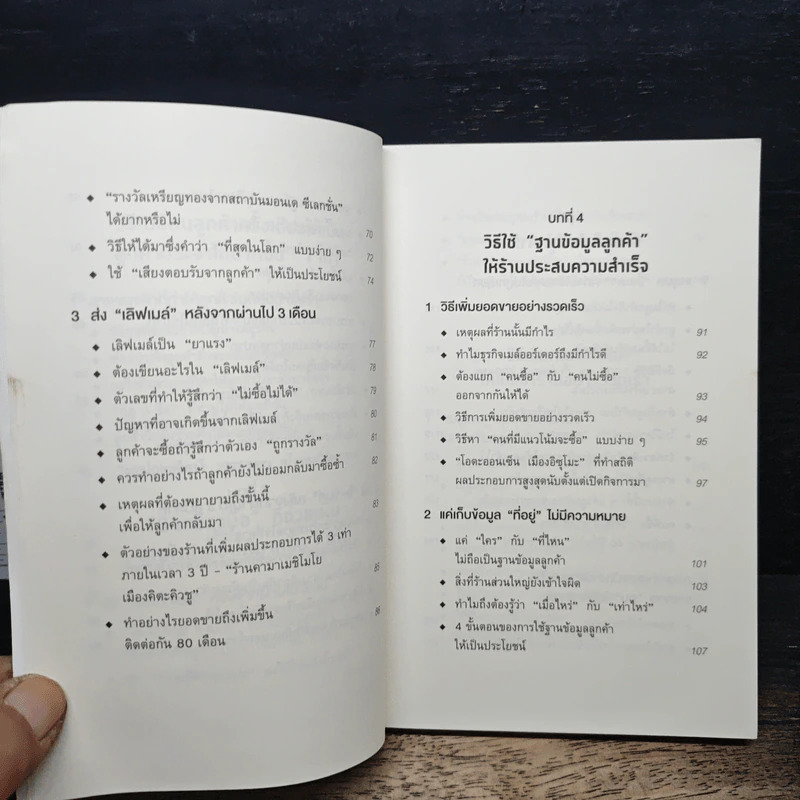 ◆ “รางวัลเหรียญทองจากสถาบันมอนเด ซีเลกชั่น”
ได้ยากหรือไม่ 70
◆ วิธีให้ได้มาซึ่งคำว่า “ที่สุดในโลก” แบบง่าย ๆ 72
◆ ใช้ “เสียงตอบรับจากลูกค้า” ให้เป็นประโยชน์ 74
3 ส่ง “เลิฟเมล์” หลังจากผ่านไป 3 เดือน
◆ เลิฟเมล์เป็น “ยาแรง” 77
◆ ต้องเขียนอะไรใน “เลิฟเมล์” 78
◆ ตัวเลขที่ทำให้รู้สึกว่า “ไม่ซื้อไม่ได้” 79
◆ ปัญหาที่อาจเกิดขึ้นจากเลิฟเมล์ 80
◆ ลูกค้าจะซื้อถ้ารู้สึกว่าตัวเอง “ถูกรางวัล” 81
◆ ควรทำอย่างไรถ้าลูกค้ายังไม่ยอมกลับมาซื้อซ้ำ 82
◆ เหตุผลที่ต้องพยายามถึงขั้นนี้
เพื่อให้ลูกค้ากลับมา 83
◆ ตัวอย่างของร้านที่เพิ่มผลประกอบการได้ 3 เท่า
ภายในเวลา 3 ปี – “ร้านคามาเมชิโมโย
เมืองคิตะคิวชู” 85
◆ ทำอย่างไรยอดขายถึงเพิ่มขึ้น 86
ติดต่อกัน 80 เดือน
บทที่ 4
วิธีใช้ “ฐานข้อมูลลูกค้า”
ให้ร้านประสบความสำเร็จ
1 วิธีเพิ่มยอดขายอย่างรวดเร็ว
◆ เหตุผลที่ร้านนั้นมีกำไร 91
◆ ทำไมธุรกิจเมล์ออร์เดอร์ถึงมีกำไรดี 92
◆ ต้องแยก “คนซื้อ” กับ “คนไม่ซื้อ”
ออกจากกันให้ได้ 93
◆ วิธีการเพิ่มยอดขายอย่างรวดเร็ว 94
◆ วิธีหา “คนที่มีแนวโน้มจะซื้อ” แบบง่าย ๆ 95
◆ “โอตะออนเซ็น เมืองอิซุโมะ” ที่ทำสถิติ
ผลประกอบการสูงสุดนับตั้งแต่เปิดกิจการมา 97
2 แค่เก็บข้อมูล “ที่อยู่” ไม่มีความหมาย
◆ แค่ “ใคร” กับ “ที่ไหน”
ไม่ถือเป็นฐานข้อมูลลูกค้า 101
◆ สิ่งที่ร้านส่วนใหญ่ยังเข้าใจผิด 103
◆ ทำไมถึงต้องรู้ว่า “เมื่อไหร่” กับ “เท่าไหร่” 104
◆ 4 ขั้นตอนของการใช้ฐานข้อมูลลูกค้า
ให้เป็นประโยชน์ 107